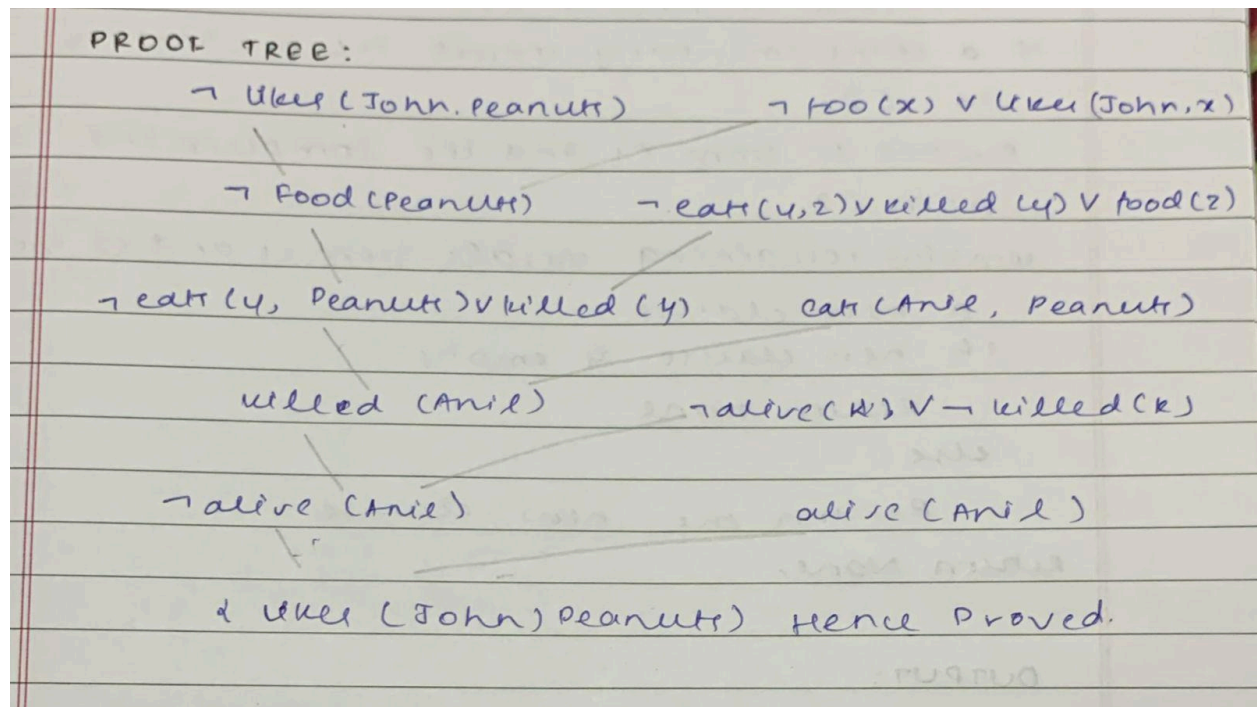 PROOF TREE:
¬ likes (John, Peanuts) ¬ foo(x) ∨ likes (John, x)
¬ Food (Peanuts) ¬ eats (y, z) ∨ killed (y) ∨ food (z)
¬ eats (y, Peanuts) ∨ killed (y) eats (Anil, Peanuts)
killed (Anil) ¬ alive (k) ∨ ¬ killed (k)
¬ alive (Anil) alive (Anil)
likes (John, Peanuts) Hence Proved.